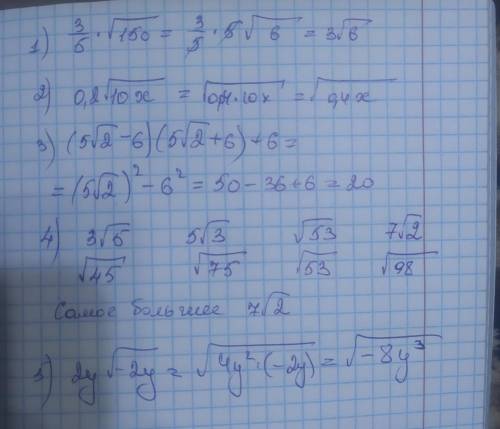 1) 3/5 · √150 = 3/5 · 5√6 = 3√6
2) 0,2√10x = √0,04·10x = √0,4x
3) (5√2 − 6)(5√2 + 6) + 6 =
= (5√2)² − 6² = 50 − 36 + 6 = 20
4) 3√5 5√3 √53 7√2
√45 √75 √53 √98
Самое большее 7√2
5) 2y√−2y = √4y²·(−2y) = √−8y³